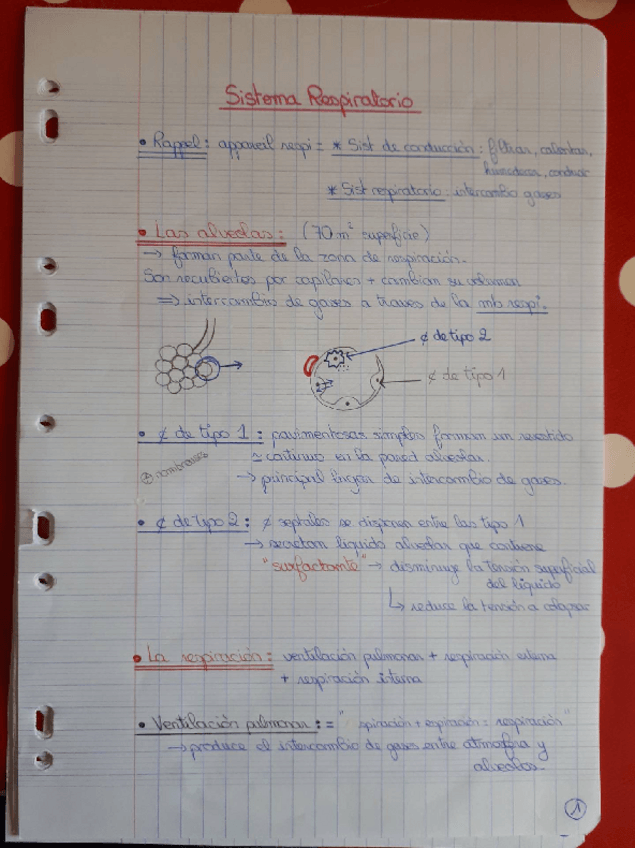 Sistema Respiratorio
• Rappel : appareil respi = * Sist de conducción : filtrar, calientar,
humedecer, conducir
* Sist respiratorio : intercambio gases
• Las alveolas : (70 m² superficie)
→ forman parte de la zona de respiración.
Son recubiertos por capilares + cambian su volumen
⇒ intercambio de gases a traves de la mb respi.
¢ de tipo 2
¢ de tipo 1
• ¢ de tipo 1 : pavimentosas simples forman un revestido
⊕ nombrosas
≃ continuo en la pared alveolar.
→ principal lugar de intercambio de gases.
• ¢ de tipo 2 : ¢ septales se disponen entre las tipo 1
→ secretan liquido alveolar que contiene
"surfactante" → disminuye la tensión superficial
del liquido
↳ reduce la tensión a colapsar
• La respiración : ventilación pulmonar + respiración externa
+ respiración interna
• Ventilación pulmonar : = " spiración + espiración = respiración"
→ produce el intercambio de gases entre atmosfera y
alveolos.
1